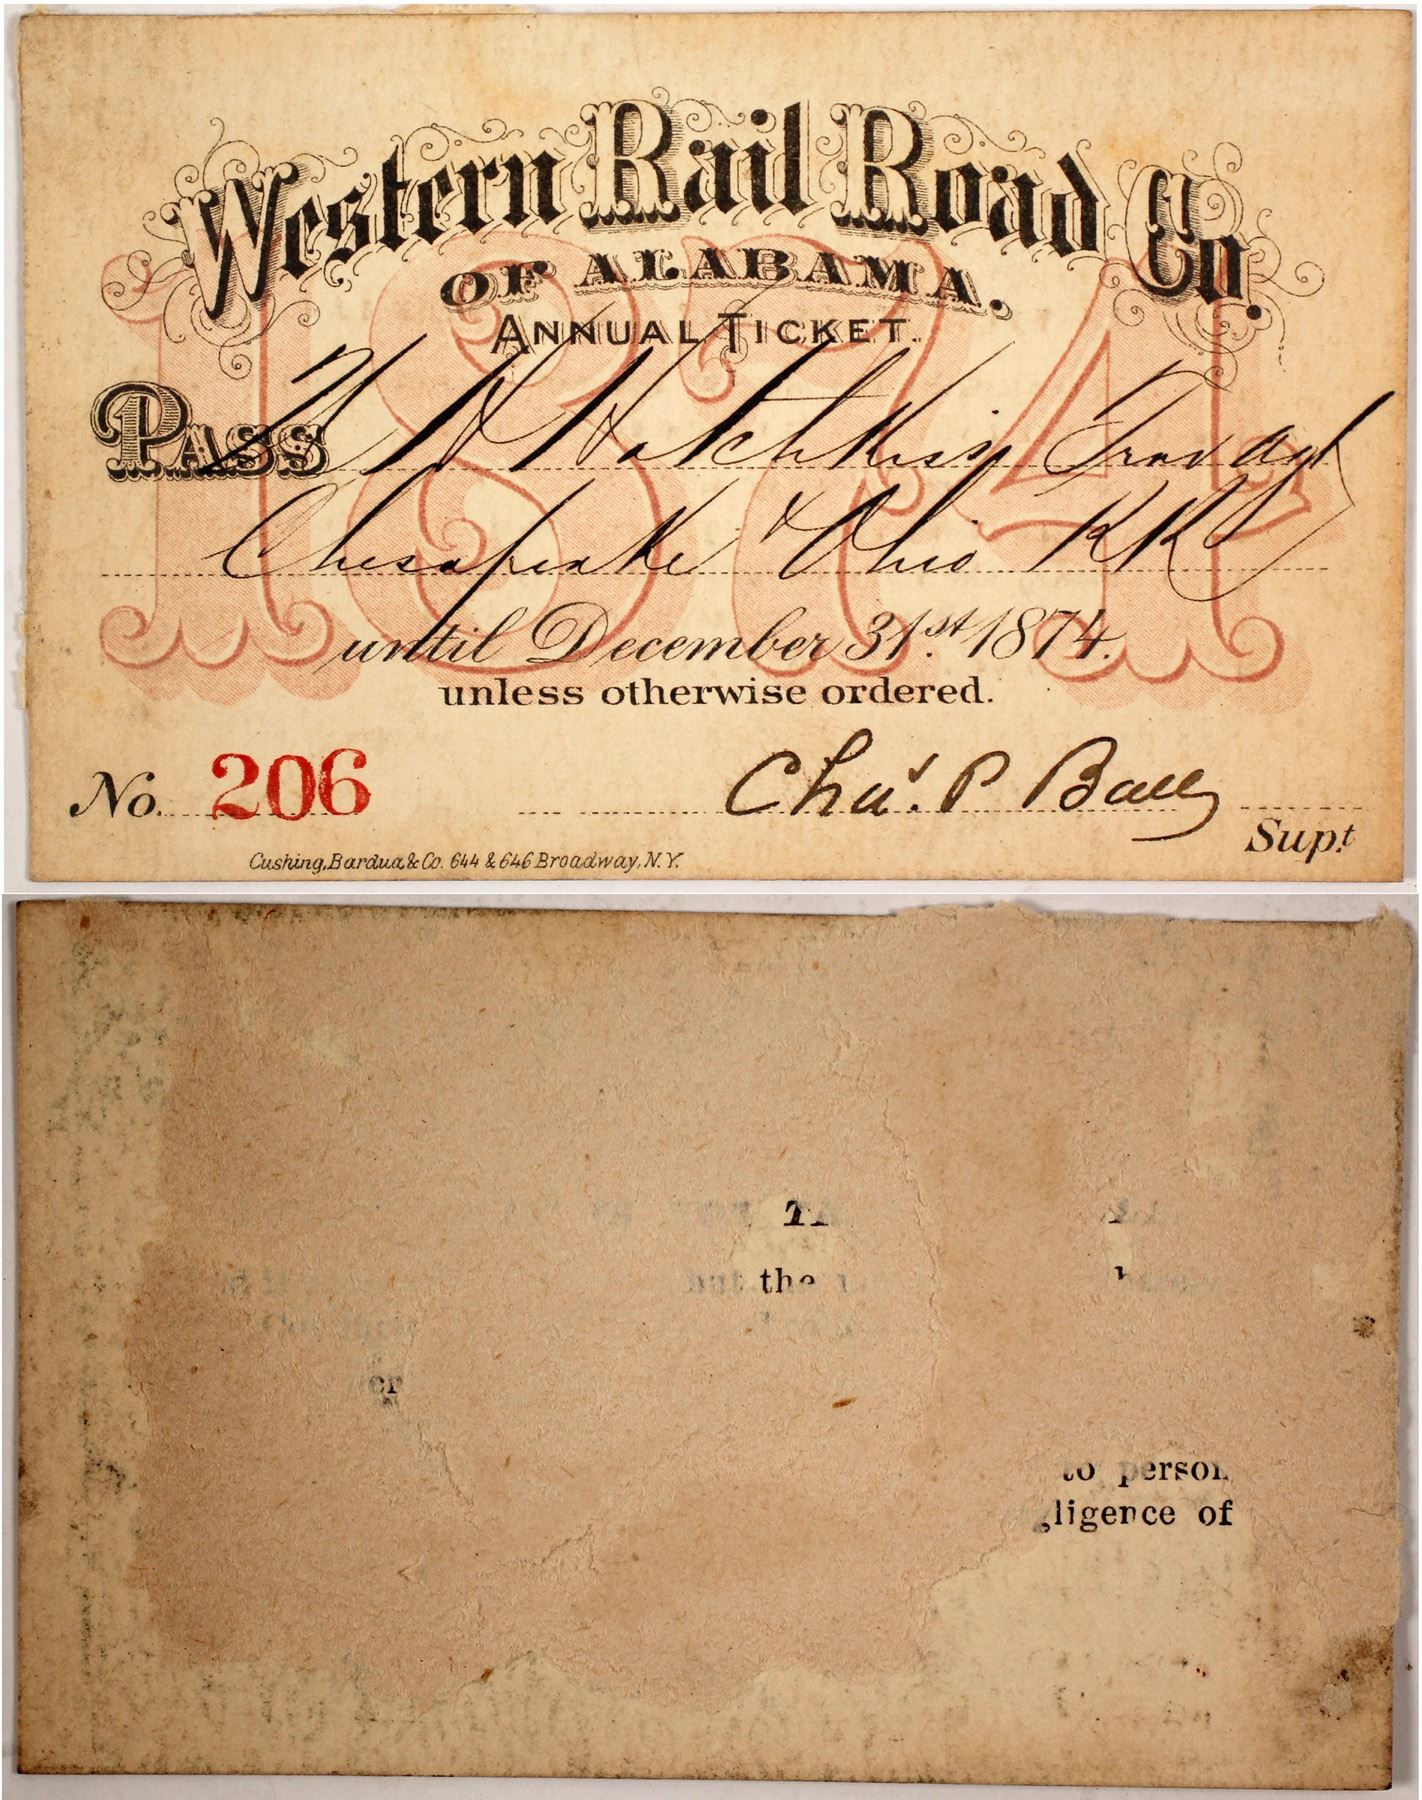 Western Rail Road Co.
OF ALABAMA.
ANNUAL TICKET.
1874
PASS Hotchkiss Trav Agt
Chesapeake & Ohio RR
until December 31st. 1874.
unless otherwise ordered.
No. 206 Chas. P Ball
Supt.
Cushing, Bardua & Co. 644 & 646 Broadway, N.Y.
but the
to person
ligence of